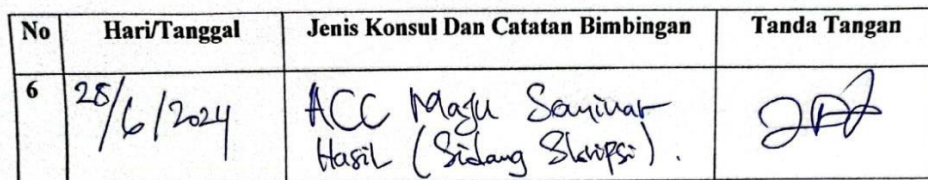 No Hari/Tanggal Jenis Konsul Dan Catatan Bimbingan Tanda Tangan
6 28/6/2024 ACC Maju Seminar
Hasil (Sidang Skripsi).